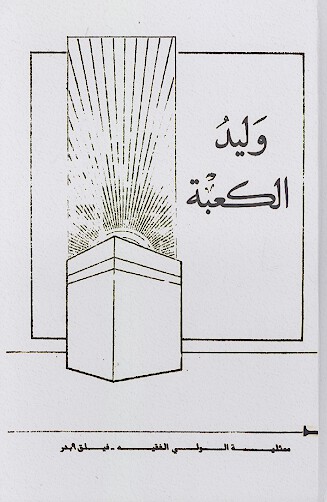 وَليدُ
الكعبة
ممثلية الولي الفقيه - فيلق ٩ بدر